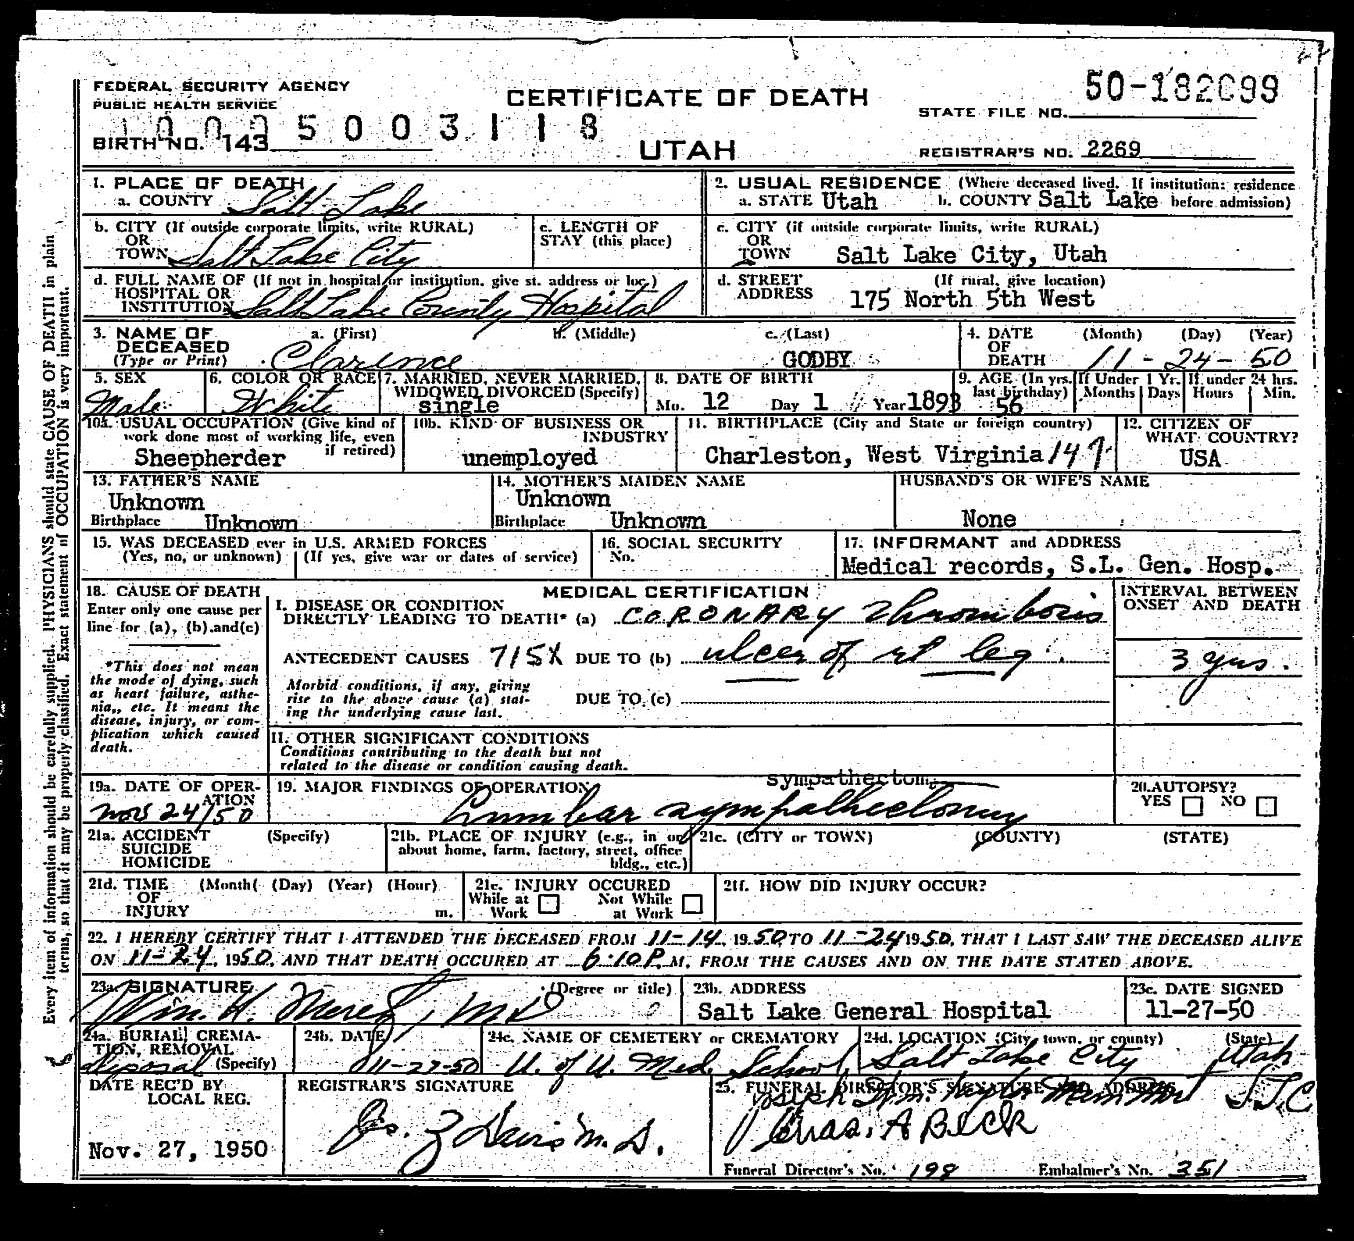 FEDERAL SECURITY AGENCY
PUBLIC HEALTH SERVICE
CERTIFICATE OF DEATH
STATE FILE NO. 50-182099
BIRTH NO. 143
UTAH
REGISTRAR'S NO. 2269
1. PLACE OF DEATH
a. COUNTY Salt Lake
2. USUAL RESIDENCE (Where deceased lived. If institution: residence
a. STATE Utah b. COUNTY Salt Lake before admission)
b. CITY (If outside corporate limits, write RURAL)
OR
TOWN Salt Lake City
c. LENGTH OF
STAY (this place)
c. CITY (if outside corporate limits, write RURAL)
OR
TOWN Salt Lake City, Utah
d. FULL NAME OF (If not in hospital or institution, give st. address or loc.)
HOSPITAL OR
INSTITUTION Salt Lake County Hospital
d. STREET (If rural, give location)
ADDRESS 175 North 5th West
3. NAME OF a. (First) b. (Middle) c. (Last)
DECEASED
(Type or Print) Clarence GODBY
4. DATE (Month) (Day) (Year)
OF
DEATH 11-24-50
5. SEX
Male
6. COLOR OR RACE
White
7. MARRIED, NEVER MARRIED,
WIDOWED DIVORCED (Specify)
single
8. DATE OF BIRTH
Mo. 12 Day 1 Year 1893
9. AGE (In yrs.
last birthday)
56
If Under 1 Yr.
Months Days
If under 24 hrs.
Hours Min.
10a. USUAL OCCUPATION (Give kind of
work done most of working life, even
if retired)
Sheepherder
10b. KIND OF BUSINESS OR
INDUSTRY
unemployed
11. BIRTHPLACE (City and State or foreign country)
Charleston, West Virginia
12. CITIZEN OF
WHAT COUNTRY?
USA
13. FATHER'S NAME
Unknown
Birthplace Unknown
14. MOTHER'S MAIDEN NAME
Unknown
Birthplace Unknown
HUSBAND'S OR WIFE'S NAME
None
15. WAS DECEASED ever in U.S. ARMED FORCES
(Yes, no, or unknown) (If yes, give war or dates of service)
16. SOCIAL SECURITY
No.
17. INFORMANT and ADDRESS
Medical records, S.L. Gen. Hosp.
18. CAUSE OF DEATH
Enter only one cause per
line for (a), (b).and(c)
*This does not mean
the mode of dying, such
as heart failure, asthe-
nia,, etc. It means the
disease, injury, or com-
plication which caused
death.
MEDICAL CERTIFICATION
I. DISEASE OR CONDITION
DIRECTLY LEADING TO DEATH* (a) CORONARY thrombosis
ANTECEDENT CAUSES 715X DUE TO (b) ulcer of rt leg
Morbid conditions, if any, giving
rise to the above cause (a) stat-
ing the underlying cause last.
DUE TO (c)
INTERVAL BETWEEN
ONSET AND DEATH
3 yrs.
11. OTHER SIGNIFICANT CONDITIONS
Conditions contributing to the death but not
related to the disease or condition causing death.
19a. DATE OF OPER-
ATION
Nov 24/50
19. MAJOR FINDINGS OF OPERATION
sympathectomy
Lumbar sympathectomy
20. AUTOPSY?
YES NO
21a. ACCIDENT (Specify)
SUICIDE
HOMICIDE
21b. PLACE OF INJURY (e.g., in or
about home, farm, factory, street, office
bldg., etc.)
21c. (CITY or TOWN) (COUNTY) (STATE)
21d. TIME (Month( (Day) (Year) (Hour)
OF
INJURY m.
21e. INJURY OCCURED
While at Not While
Work at Work
21f. HOW DID INJURY OCCUR?
22. I HEREBY CERTIFY THAT I ATTENDED THE DECEASED FROM 11-14, 1950 TO 11-24 1950, THAT I LAST SAW THE DECEASED ALIVE
ON 11-24, 1950, AND THAT DEATH OCCURED AT 6:10 P. M, FROM THE CAUSES AND ON THE DATE STATED ABOVE.
23a. SIGNATURE (Degree or title)
Wm. H. MD
23b. ADDRESS
Salt Lake General Hospital
23c. DATE SIGNED
11-27-50
24a. BURIAL, CREMA-
TION, REMOVAL
disposal (Specify)
24b. DATE
11-27-50
24c. NAME OF CEMETERY or CREMATORY
U. of U. Med. School
24d. LOCATION (City, town, or county) (State)
Salt Lake City Utah
DATE REC'D BY
LOCAL REG.
Nov. 27, 1950
REGISTRAR'S SIGNATURE
Davis M.D.
25. FUNERAL DIRECTOR'S SIGNATURE AND ADDRESS
Chas. A Beck
Funeral Director's No. 198 Embalmer's No. 351
Every item of information should be carefully supplied. PHYSICIANS should state CAUSE OF DEATH in plain
terms, so that it may be properly classified. Exact statement of OCCUPATION is very important.